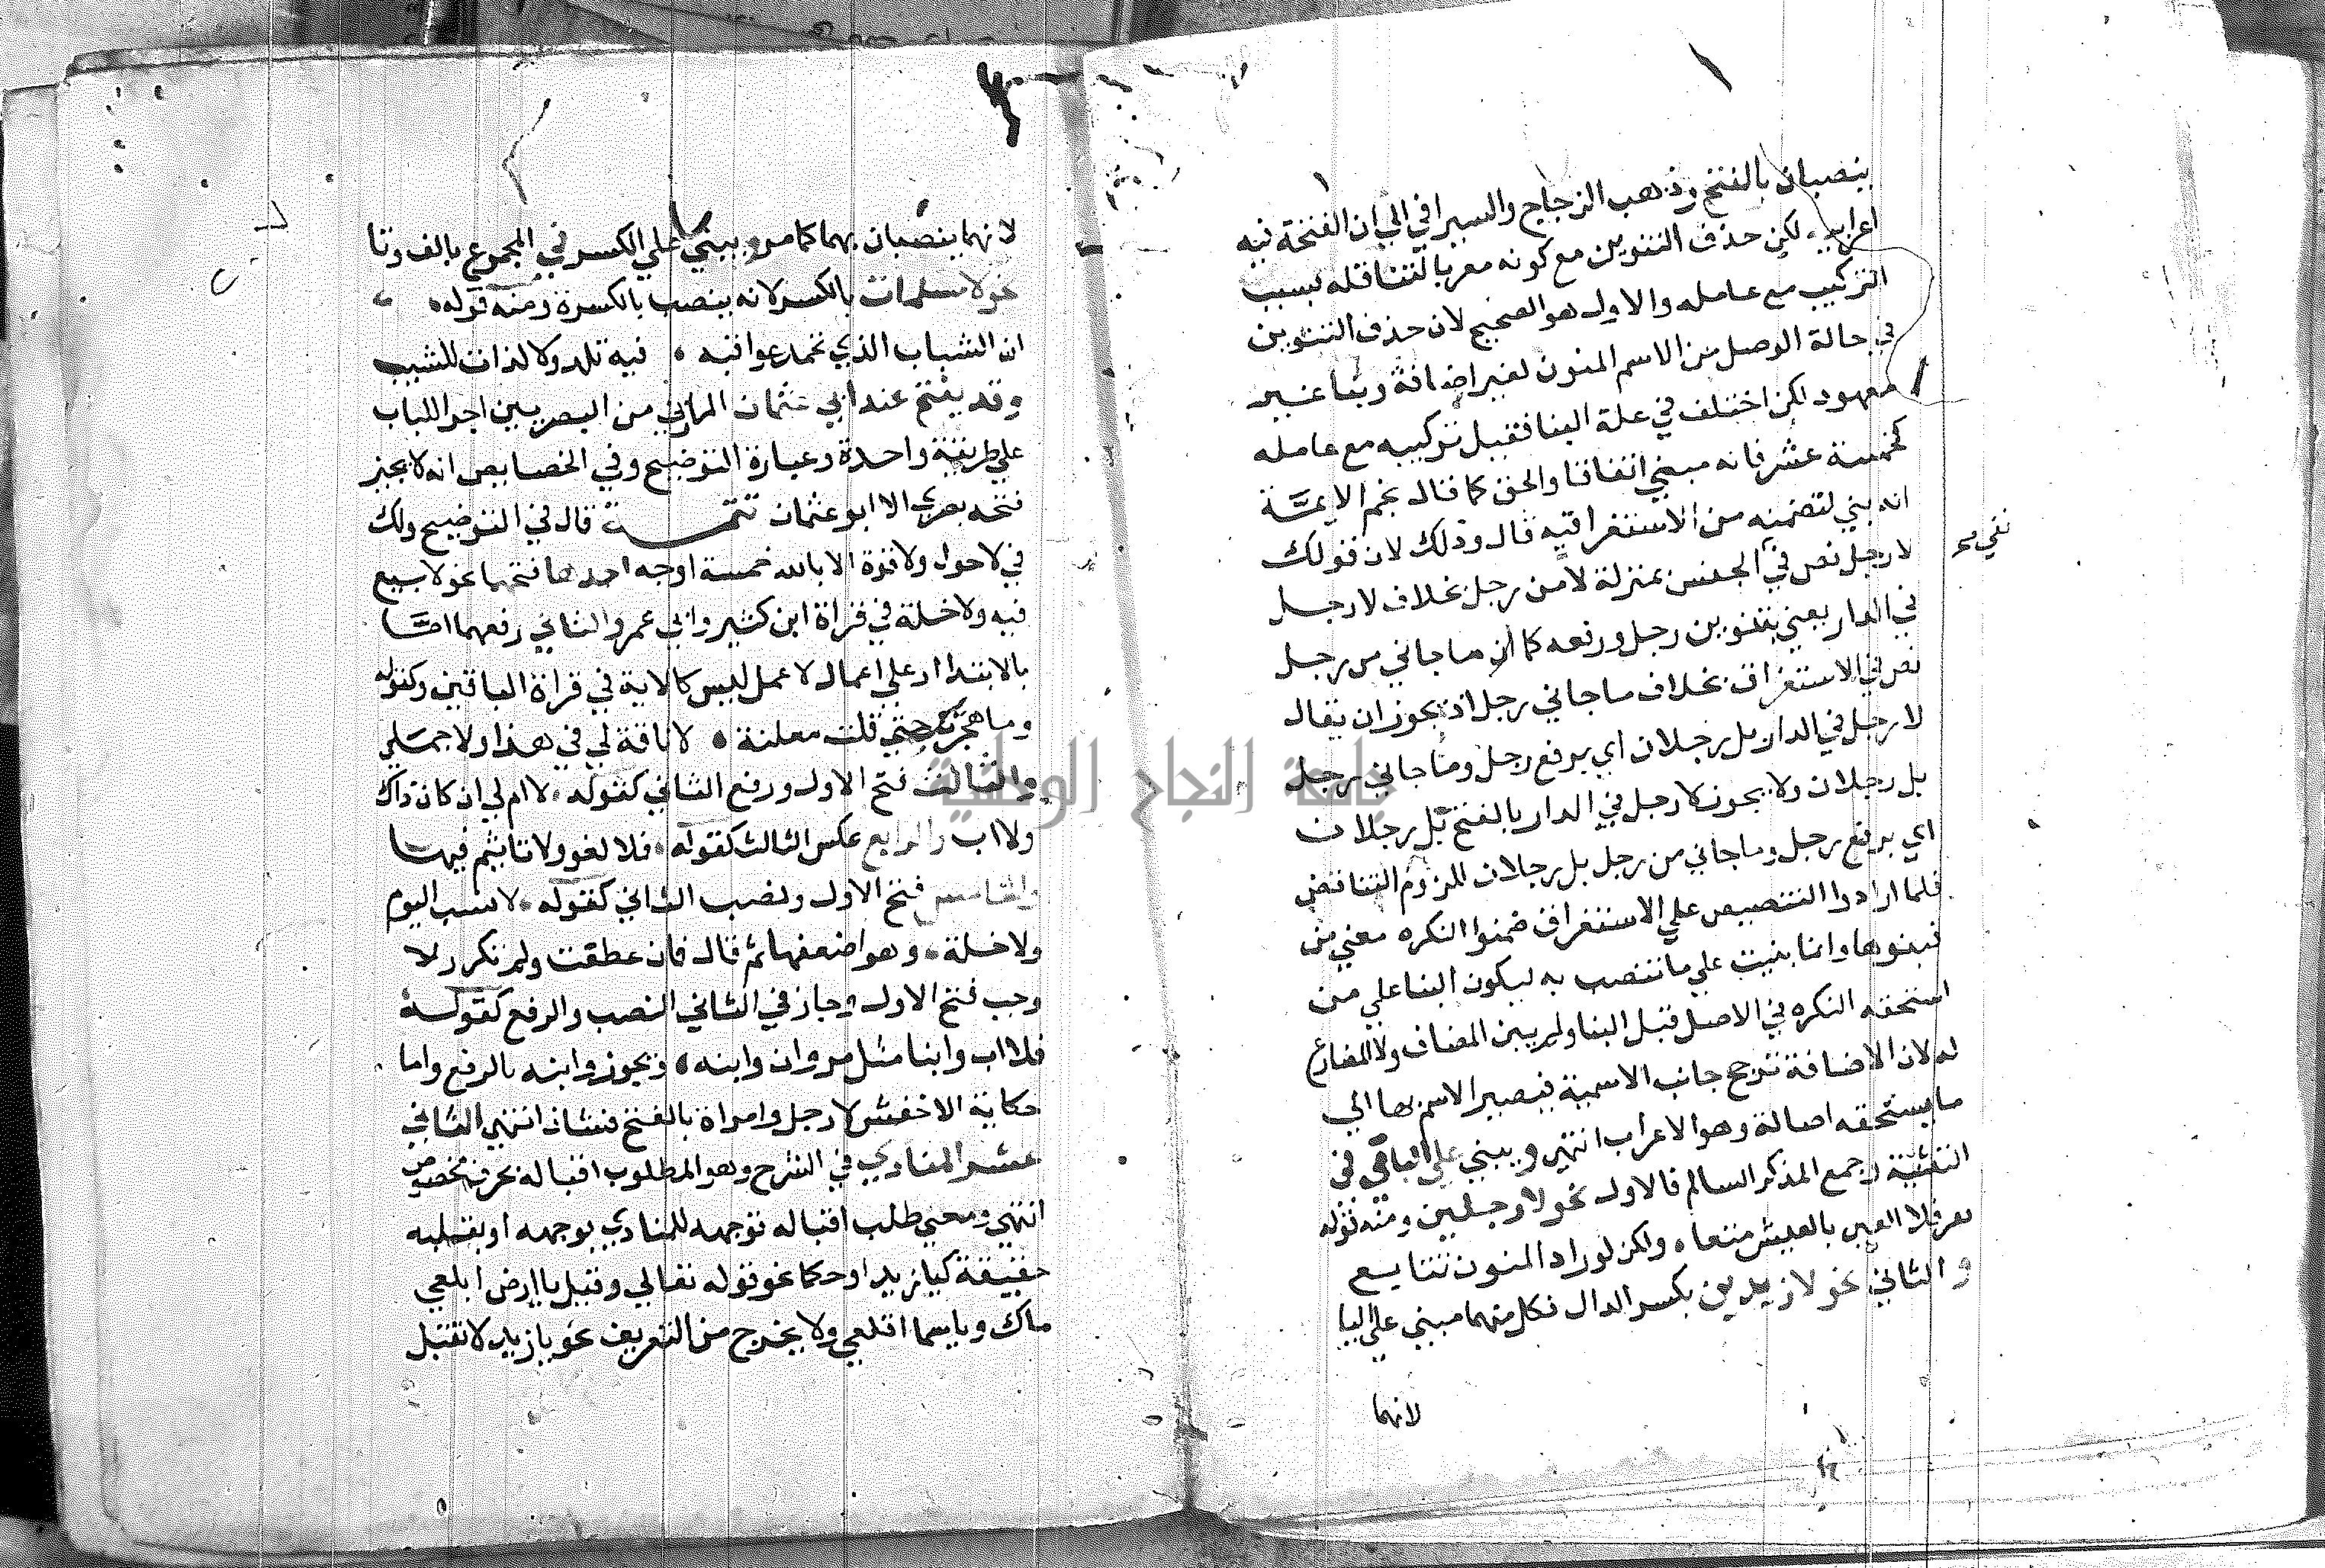 ينصبان بالفتح وذهب الزجاج والسيرافي الي ان الفتحة فيه
اعرابيه لكن حذف التنوين مع كونه معربا لتثاقله بسبب
التركيب مع عامله والاول هو الصحيح لان حذف التنوين
في حالة الوصل من الاسم المنون لغير اضافة وبنا غير
معهود لكن اختلف في علة البنا فقيل تركيبه مع عامله
كخمسة عشر فانه مبني اتفاقا والحق كما قال نجم الايمة
انه بني لتضمنه من الاستغراقيه قال وذلك لان قولك
لا رجل نص في الجنس بمنزلة لا من رجل بخلاف لا رجل
نفي صح
في الدار يعني بتنوين رجل ورفعه كما ان ما جاني من رجل
نص في الاستغراق بخلاف ما جاني رجل اذ يجوز ان يقال
لا رجل في الدار بل رجلان اي برفع رجل وما جاني رجل
بل رجلان ولا يجوز لا رجل في الدار بالفتح بل رجلان
اي برفع رجل وما جاني من رجل بل رجلان للزوم التناقض
فلما ارادوا التنصيص علي الاستغراق ضمنوا النكره معني من
فبنوها وانما بنيت علي ما تنصب به ليكون البنا علي من
استحقه النكره في الاصل قبل البنا ولم يبن المضاف ولا المضارع
له لان الاضافة ترجح جانب الاسمية فيصير الاسم بها الي
ما يستحقه اصالة وهو الاعراب انتهي ويبني علي الباقي في
التثنية وجمع المذكر السالم فالاول نحو لا رجلين ومنه قوله
تعز فلا الفين بالعيش متعا ولكن لوراد المنون تتايع
والثاني نحو لا زيدين بكسر الدال فكل منهما مبني علي اليا
لانهما
لانهما ينصبان بهما كما مر ويبني علي الكسر في المجموع بالف وتا
نحو لا مسلمات بالكسر لانه ينصب بالكسرة ومنه قوله
ان الشباب الذي تحمد عواقبه فيه تلد ولا لذات للشيب
وقد يفتح عند ابي عثمان المازني من البصريين اجرا للباب
علي طريقة واحدة وعبارة التوضيح وفي الخصايص انه لا يجيز
فتحه بصري الا ابو عثمان تتمة قال في التوضيح ولك
في لا حول ولا قوة الا بالله خمسة اوجه احدها فتحهما نحو لا بيع
فيه ولا خلة في قراة ابن كثير وابي عمرو الثاني رفعهما اما
بالابتدا او علي اعمال لا عمل ليس كالاية في قراة الباقين وكقوله
وما هجرتك حتي قلت معلنة لا ناقة لي في هذا ولا جمل
والثالث فتح الاول ورفع الثاني كقوله لا ام لي ان كان ذاك
ولا اب والرابع عكس الثالث كقوله فلا لغو ولا تاثيم فيها
والخامس فتح الاول ونصب الثاني كقوله لا نسب اليوم
ولا خلة وهو اضعفها ثم قال فان عطفت ولم تكرر لا
وجب فتح الاول وجاز في الثاني النصب والرفع كقوله
فلا اب وابنا مثل مروان وابنه ويجوز وابنه بالرفع واما
حكاية الاخفش لا رجل وامراة بالفتح فشاذ انتهي الثاني
عشر المنادي في الشرح وهو المطلوب اقباله بحرف مخصوص
انتهي ومعني طلب اقباله توجهه للمنادي بوجهه او بقلبه
حقيقة كيا زيد او حكما نحو قوله تعالي وقيل يا ارض ابلعي
ماك ويا سما اقلعي ولا يخرج من التعريف نحو يا زيد لا تقبل
جامعة النجاح الوطنية